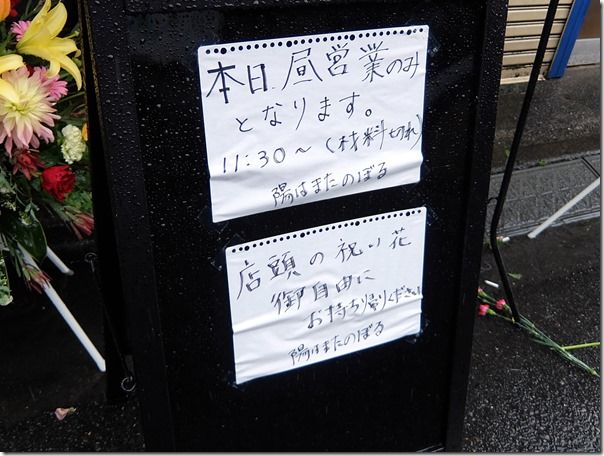 本日、昼営業のみ
となります。
11:30～(材料切れ)
陽はまたのぼる
店頭の祝い花
御自由に
お持ち帰りください
陽はまたのぼる